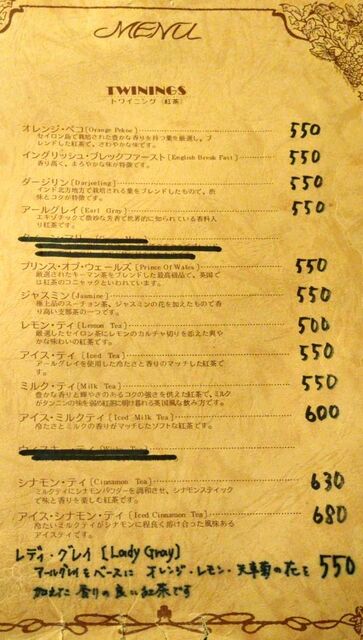 MENU
TWININGS
トワイニング(紅茶)
オレンジ・ペコ[Orange Pekoe] 550
セイロン島で栽培された豊かな香りを持つ葉を厳選し、ブ
レンドした紅茶で、さわやかな味です。
イングリッシュ・ブレックファースト[English Break Fast] 550
香り高く、まろやかな味が特徴です。
ダージリン[Darjeeling] 550
インド北方地方で栽培される葉をブレンドしたもので、渋
味とコクが特徴です。
アールグレイ[Earl Gray] 550
エキゾチックで微妙な芳香で世界的に知られている香料入
り紅茶です。
プリンス・オブ・ウェールズ[Prince Of Wales] 550
厳選されたキーマン茶をブレンドした最高級品で、英国で
は紅茶のコニャックといわれています。
ジャスミン[Jasmine] 550
極上品のスーチョン茶、ジャスミンの花を加えたもので香
り高い支那茶の一つです。
レモン・ティ[Lemon Tea] 500
厳選したセイロン茶にレモンのカルチャ切りを添えた爽や
かな味わいの紅茶です。
アイス・ティ[Iced Tea] 550
アールグレイを使用した冷たさと香りのマッチした紅茶で
す。
ミルク・ティ[Milk Tea] 550
豊かな香りと輝やきのあるコクの強さを供えた紅茶で、ミルク
がタンニンの味を弱め紅茶に明け暮れる英国風な飲み方です。
アイス・ミルクティ[Iced Milk Tea] 600
冷たさとミルクの香りがマッチしたソフトな紅茶です。
シナモン・ティ[Cinnamon Tea] 630
ミルクティにシナモンパウダーを調和させ、シナモンスティック
で味と香りを楽しむ紅茶です。
アイス・シナモン・ティ[Iced Cinnamon Tea] 680
冷たいミルクティがシナモンに程良く溶け合った風味ある
アイスティです。
レディ・グレイ [Lady Gray]
アールグレイをベースに オレンジ・レモン・矢車菊の花を 550
加えた 香りの良い紅茶です